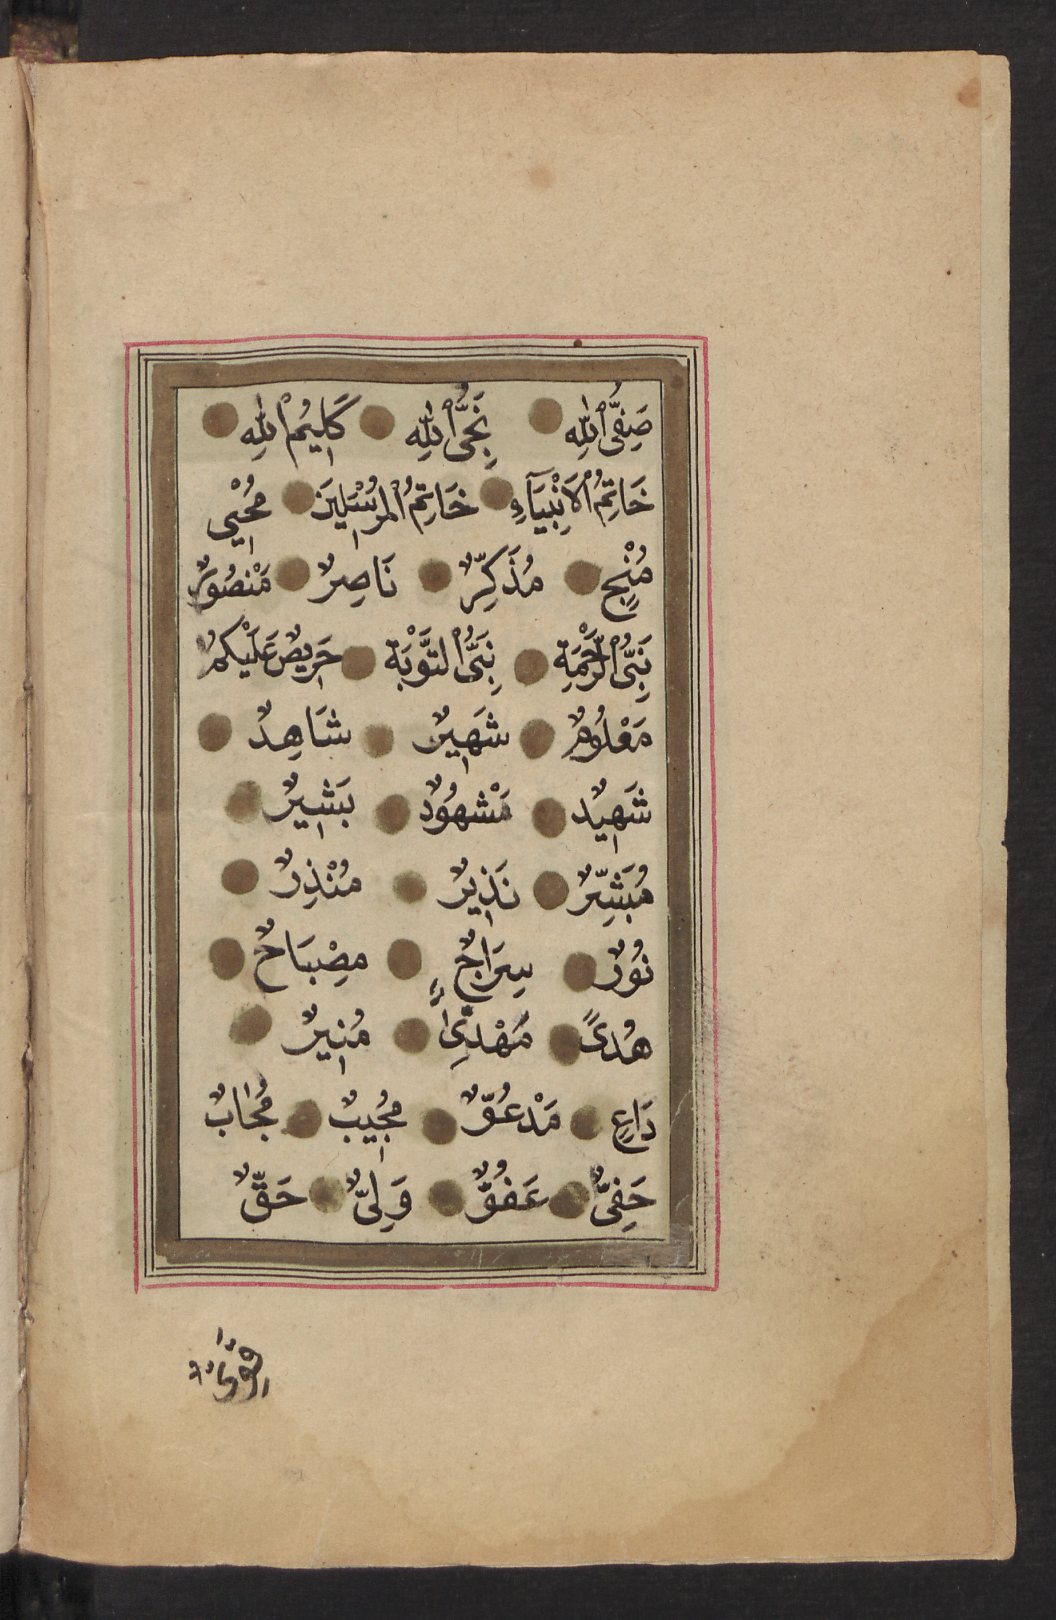 صَفِيُّ ٱللّٰهِ نَجِيُّ ٱللّٰهِ كَلِيمُ ٱللّٰهِ
خَاتِمُ ٱلْاَنْبِيَآءِ خَاتِمُ ٱلْمُرْسَلِينَ مُحْيِي
مُنْجٍ مُذَكِّرٌ نَاصِرٌ مَنْصُورٌ
نَبِيُّ ٱلرَّحْمَةِ نَبِيُّ ٱلتَّوْبَةِ حَرِيصٌ عَلَيْكُمْ
مَعْلُومٌ شَهِيرٌ شَاهِدٌ
شَهِيدٌ مَشْهُودٌ بَشِيرٌ
مُبَشِّرٌ نَذِيرٌ مُنْذِرٌ
نُورٌ سِرَاجٌ مِصْبَاحٌ
هُدًى مَهْدِيٌّ مُنِيرٌ
دَاعٍ مَدْعُوٌّ مُجِيبٌ مُجَابٌ
حَفِيٌّ عَفُوٌّ وَلِيٌّ حَقٌّ
قَوِيٌّ